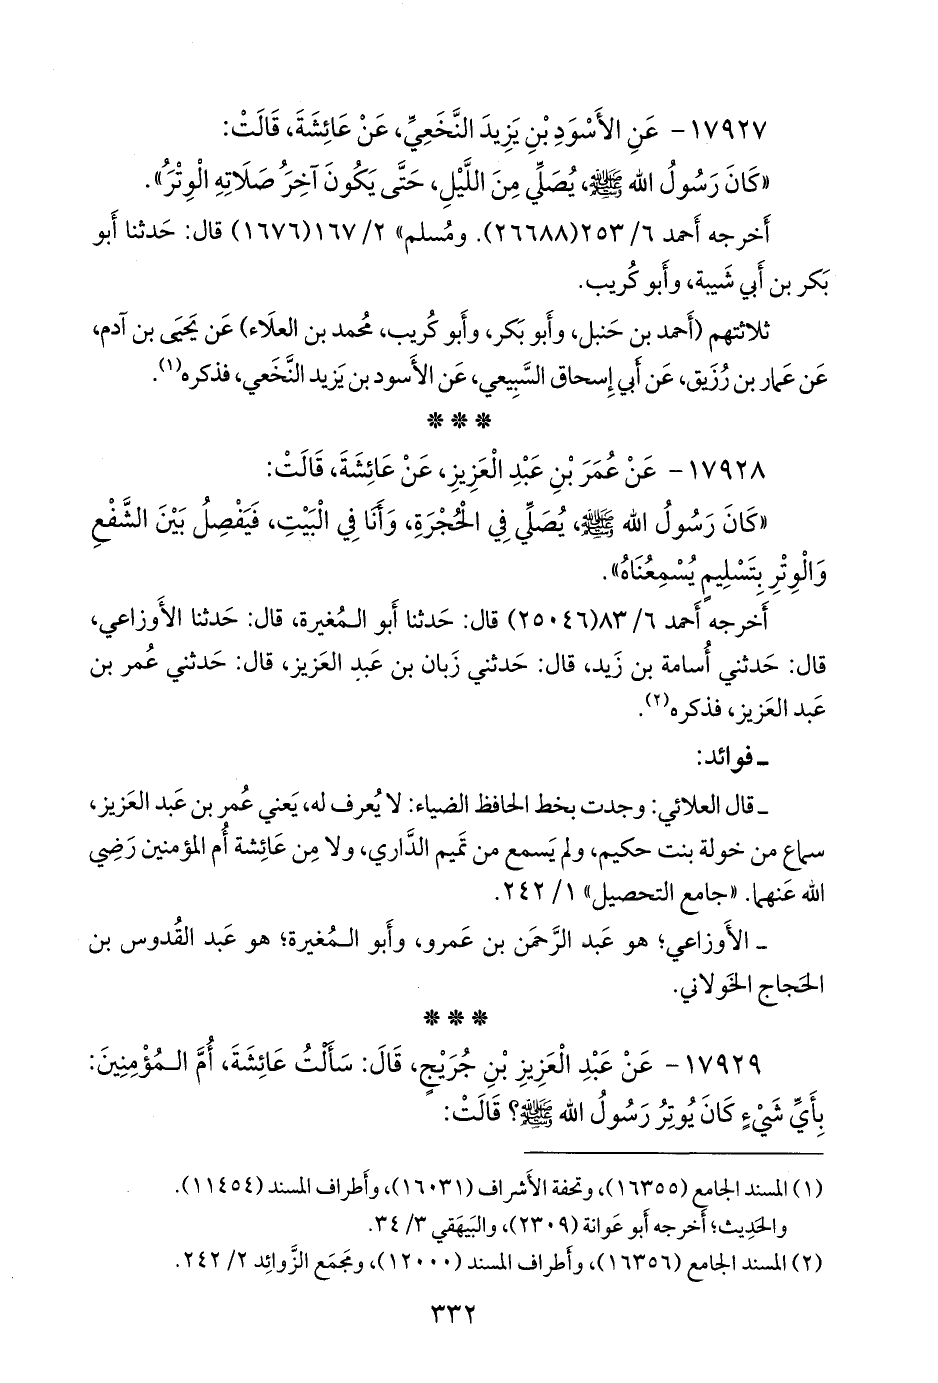 ١٧٩٢٧- عَنِ الأَسْوَدِ بْنِ يَزِيدَ النَّخَعِيِّ، عَنْ عَائِشَةَ، قَالَتْ:
«كَانَ رَسُولُ الله ﷺ، يُصَلِّي مِنَ اللَّيْلِ، حَتَّى يَكُونَ آخِرَ صَلَاتِهِ الْوِتْرُ».
أَخرجه أَحمد ٦/ ٢٥٣(٢٦٦٨٨). ومُسلم» ٢/ ١٦٧(١٦٧٦) قال: حَدثنا أَبو
بَكر بن أَبي شَيبة، وأَبو كُريب.
ثلاثتهم (أَحمد بن حَنبل، وأَبو بَكر، وأَبو كُريب، مُحمد بن العلَاء) عَن يَحيَى بن آدم،
عَن عَمار بن رُزَيق، عَن أَبي إِسحاق السَّبيعي، عَن الأَسود بن يَزيد النَّخَعي، فذكره(١).
* * *
١٧٩٢٨- عَنْ عُمَرَ بْنِ عَبْدِ الْعَزِيزِ، عَنْ عَائِشَةَ، قَالَتْ:
«كَانَ رَسُولُ الله ﷺ، يُصَلِّي فِي الْحُجْرَةِ، وَأَنَا فِي الْبَيْتِ، فَيَفْصِلُ بَيْنَ الشَّفْعِ
وَالْوِتْرِ بِتَسْلِيمٍ يُسْمِعُنَاهُ».
أَخرجه أَحمد ٦/ ٨٣(٢٥٠٤٦) قال: حَدثنا أَبو الـمُغيرة، قال: حَدثنا الأَوزاعي،
قال: حَدثني أُسامة بن زَيد، قال: حَدثني زَبان بن عَبد العَزيز، قال: حَدثني عُمر بن
عَبد العَزيز، فذكره(٢).
ـ فوائد:
ـ قال العلائي: وجدت بخط الحافظ الضياء: لا يُعرف له، يَعني عُمر بن عَبد العَزيز،
سماع من خولة بنت حكيم، ولم يَسمع من تَميم الدَّاري، ولا مِن عَائِشة أُم المؤمنين رَضِي
الله عَنهما. «جامع التحصيل» ١/ ٢٤٢.
ـ الأَوزاعي؛ هو عَبد الرَّحمَن بن عَمرو، وأَبو الـمُغيرة؛ هو عَبد القُدوس بن
الحَجاج الخَولاني.
* * *
١٧٩٢٩- عَنْ عَبْدِ الْعَزِيزِ بْنِ جُرَيْجٍ، قَالَ: سَأَلْتُ عَائِشَةَ، أُمَّ الـمُؤْمِنِينَ:
بِأَيِّ شَيْءٍ كَانَ يُوتِرُ رَسُولُ الله ﷺ؟ قَالَتْ:
(١) المسند الجامع (١٦٣٥٥)، وتحفة الأشراف (١٦٠٣١)، وأَطراف المسند (١١٤٥٤).
والحَدِيث؛ أَخرجه أَبو عَوانة (٢٣٠٩)، والبَيهَقي ٣/ ٣٤.
(٢) المسند الجامع (١٦٣٥٦)، وأَطراف المسند (١٢٠٠٠)، ومَجمَع الزَّوائِد ٢/ ٢٤٢.
٣٣٢